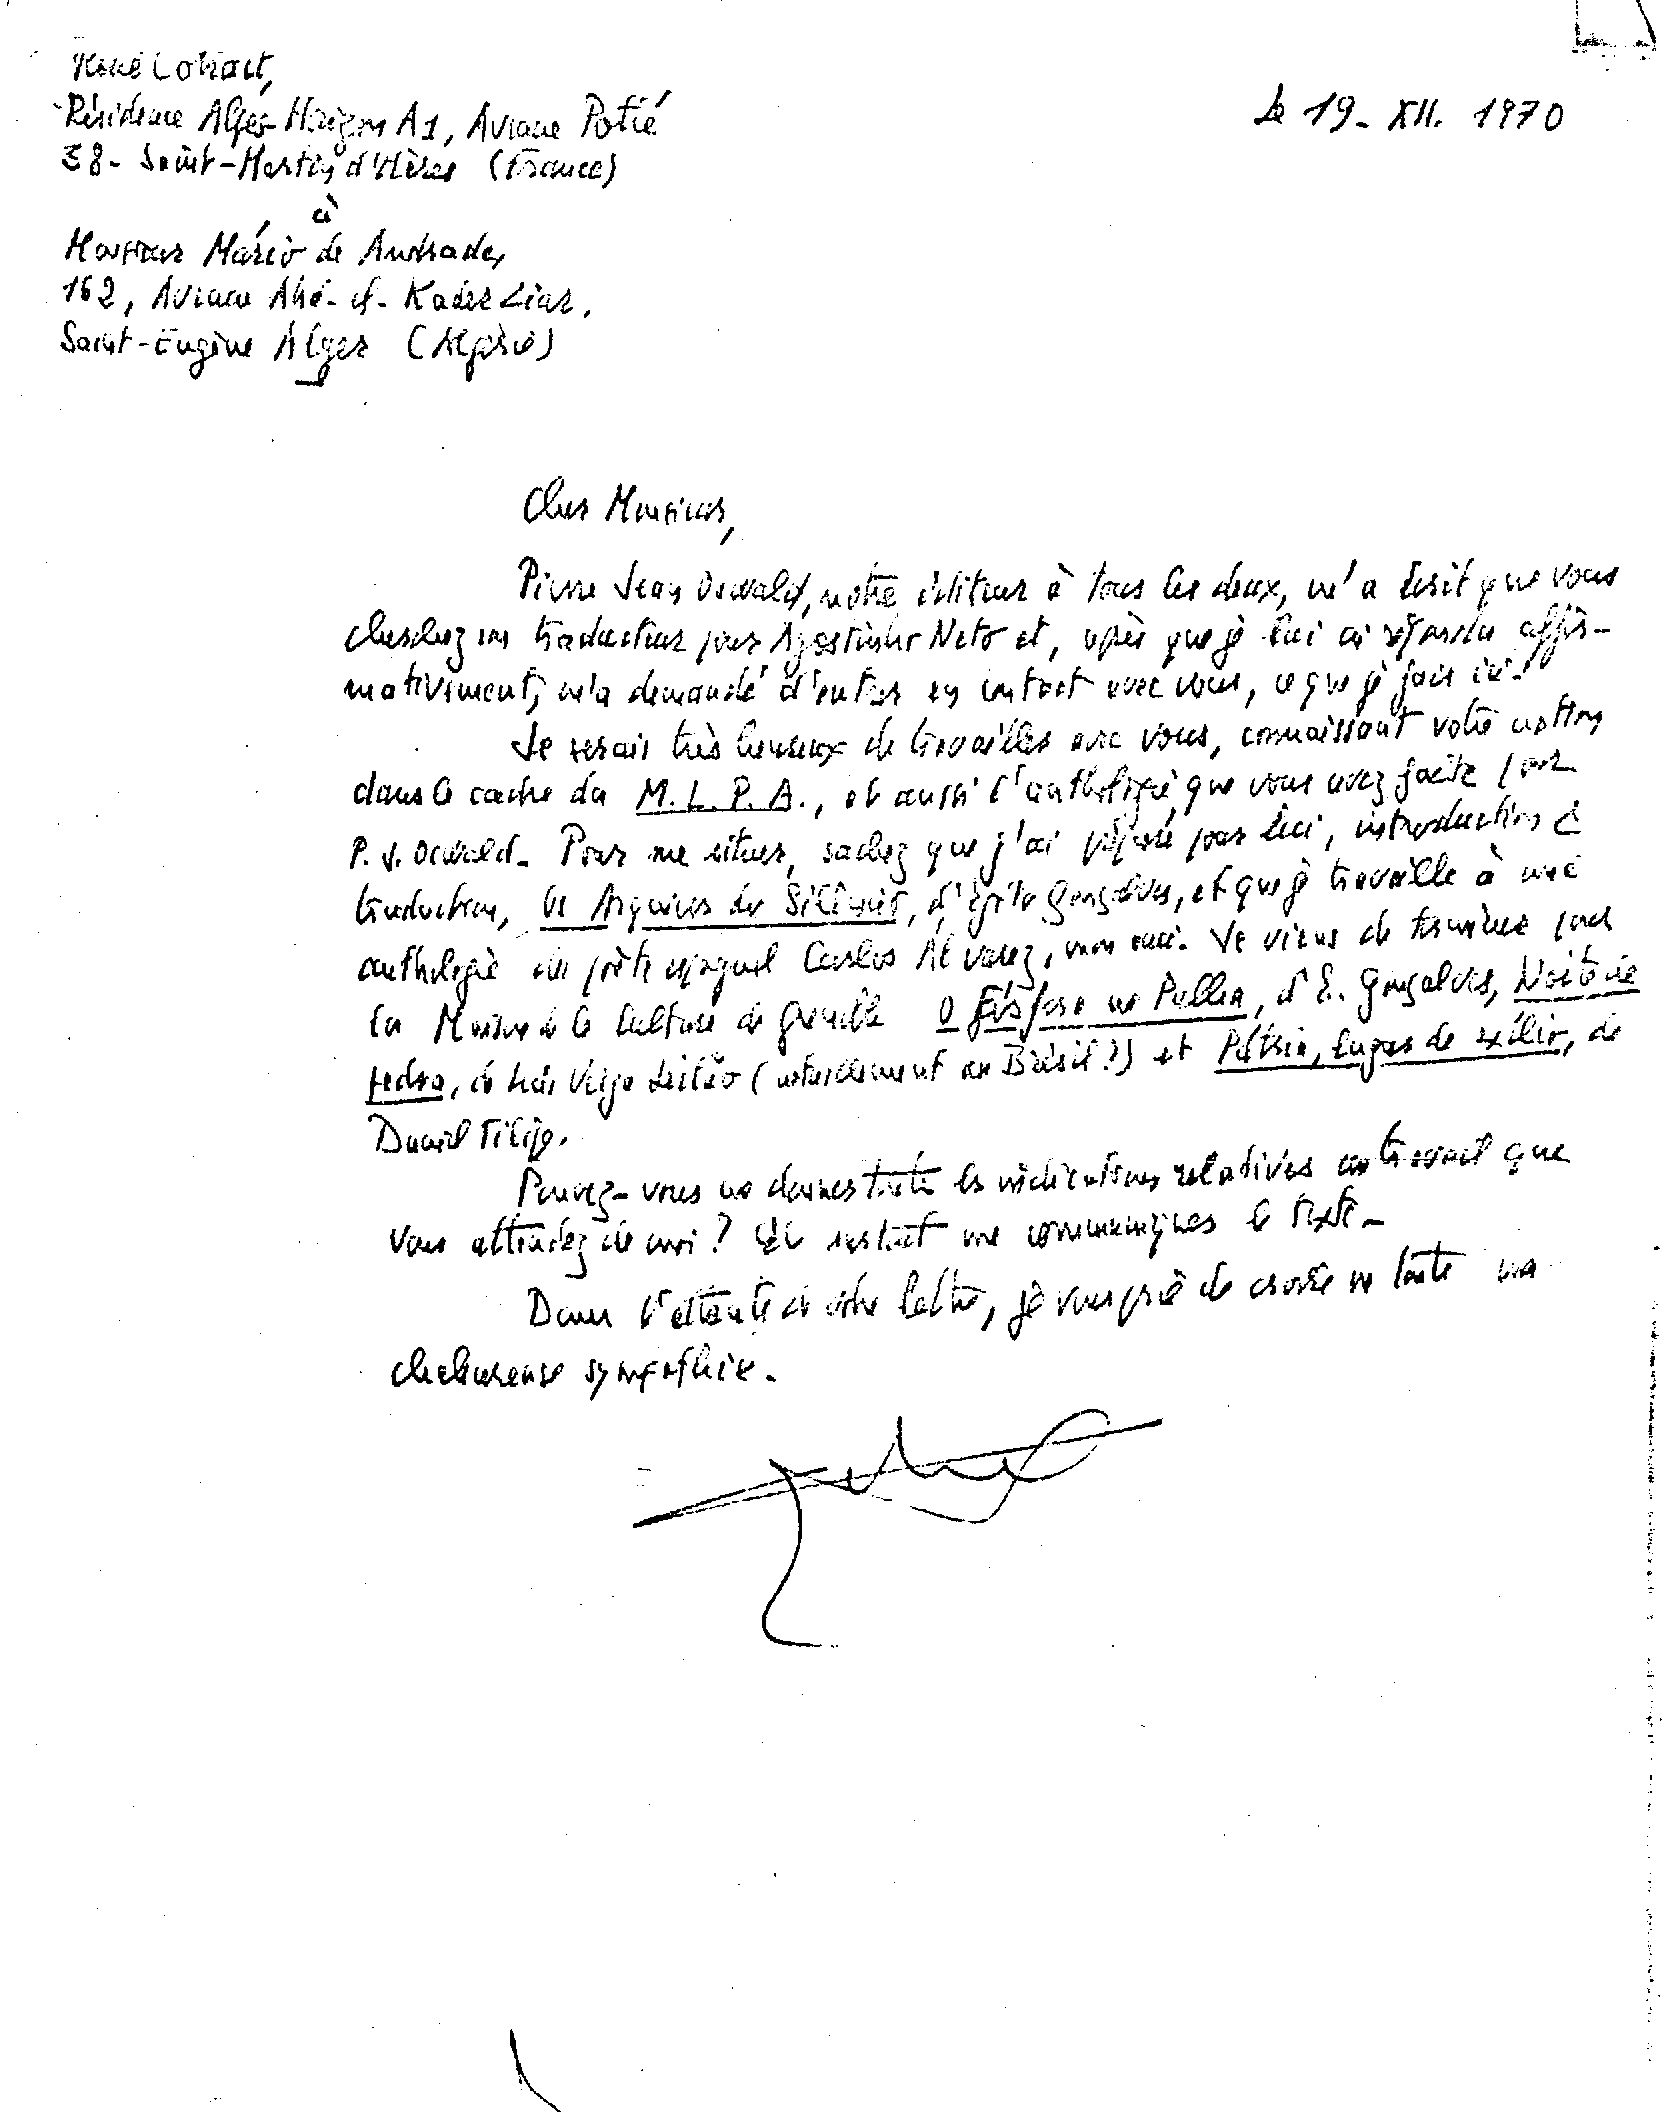 René Cottract,
Résidence Alger-Horizon A1, Avenue Potié
38- Saint-Martin d'Hères (France)
à
Monsieur Mário de Andrade,
162, Avenue Abd-el-Kader
Saint-Eugène Alger (Algérie)
Le 19- XII. 1970
Cher Monsieur,
Pierre Jean Oswald, notre éditeur à tous les deux, m'a écrit que vous
cherchez un traducteur pour Agostinho Neto et, après que je lui ai répondu affir-
mativement, m'a demandé d'entrer en contact avec vous, ce que je fais ici.
Je serais très heureux de travailler avec vous, connaissant votre action
dans le cadre du M.L.P.A., et aussi l'anthologie que vous avez faite pour
P.J. Oswald. Pour me situer, sachez que j'ai préparé pour lui, introduction &
traduction, d'Egito Gonçalves, et que je travaille à une
anthologie du poète espagnol Carlos Alvarez, mon ami. Je viens de terminer pour
la Maison de la Culture de Grenoble O Fósforo na Palha, d'E. Gonçalves, Noite de
pedra, de Luís Veiga Leitão (actuellement au Brésil?) et Pátria, lugar de exílio, de
Daniel Filipe.
Pouvez-vous me donner toutes les indications relatives au travail que
vous attendez de moi? Et surtout me communiquer le texte.
Dans l'attente de votre lettre, je vous prie de croire en toute ma
chaleureuse sympathie.